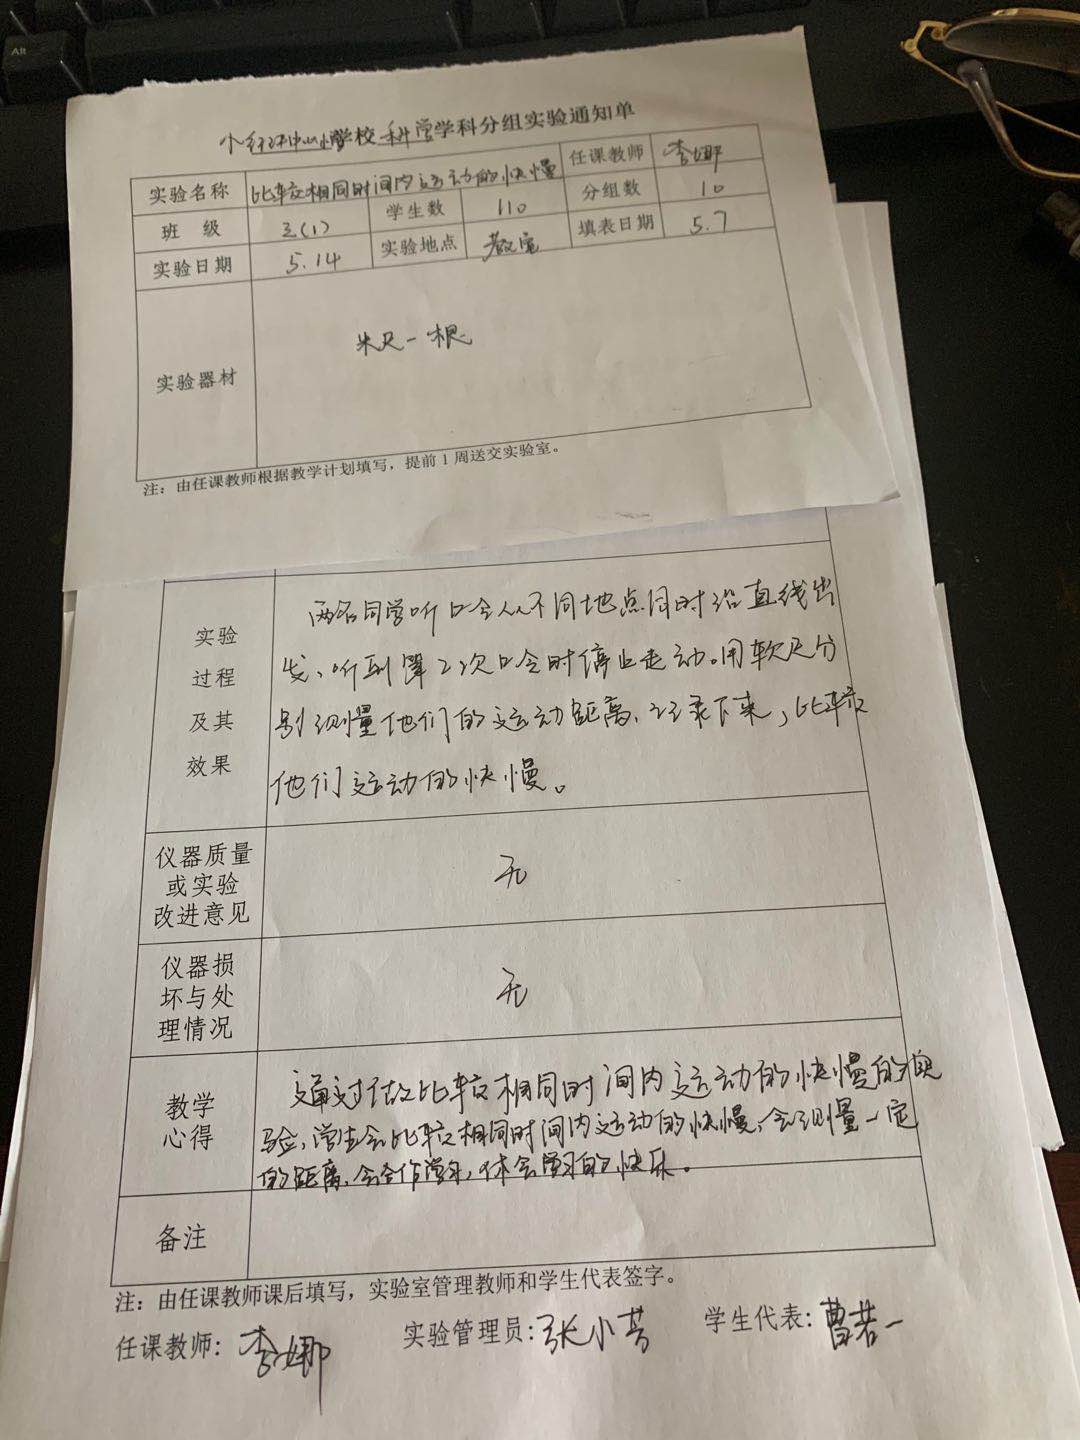 Alt
学校科学学科分组实验通知单
实验名称 比较相同时间内运动的快慢 任课教师 李娜
班 级 三(1) 学生数 110 分组数 10
实验日期 5.14 实验地点 教室 填表日期 5.7
实验器材 米尺一根
注：由任课教师根据教学计划填写，提前1周送交实验室。
实验
过程
及其
效果
两名同学听口令从不同地点同时沿直线出
发、听到第二次口令时停止走动。用软尺分
别测量他们的运动距离、记录下来，比较
他们运动的快慢。
仪器质量
或实验
改进意见
无
仪器损
坏与处
理情况
无
教学
心得
通过做比较相同时间内运动的快慢的实
验，学生会比较相同时间内运动的快慢，会测量一定
的距离、会合作学习，体会学习的快乐。
备注
注：由任课教师课后填写，实验室管理教师和学生代表签字。
任课教师：李娜 实验管理员：张小芳 学生代表：曹若一